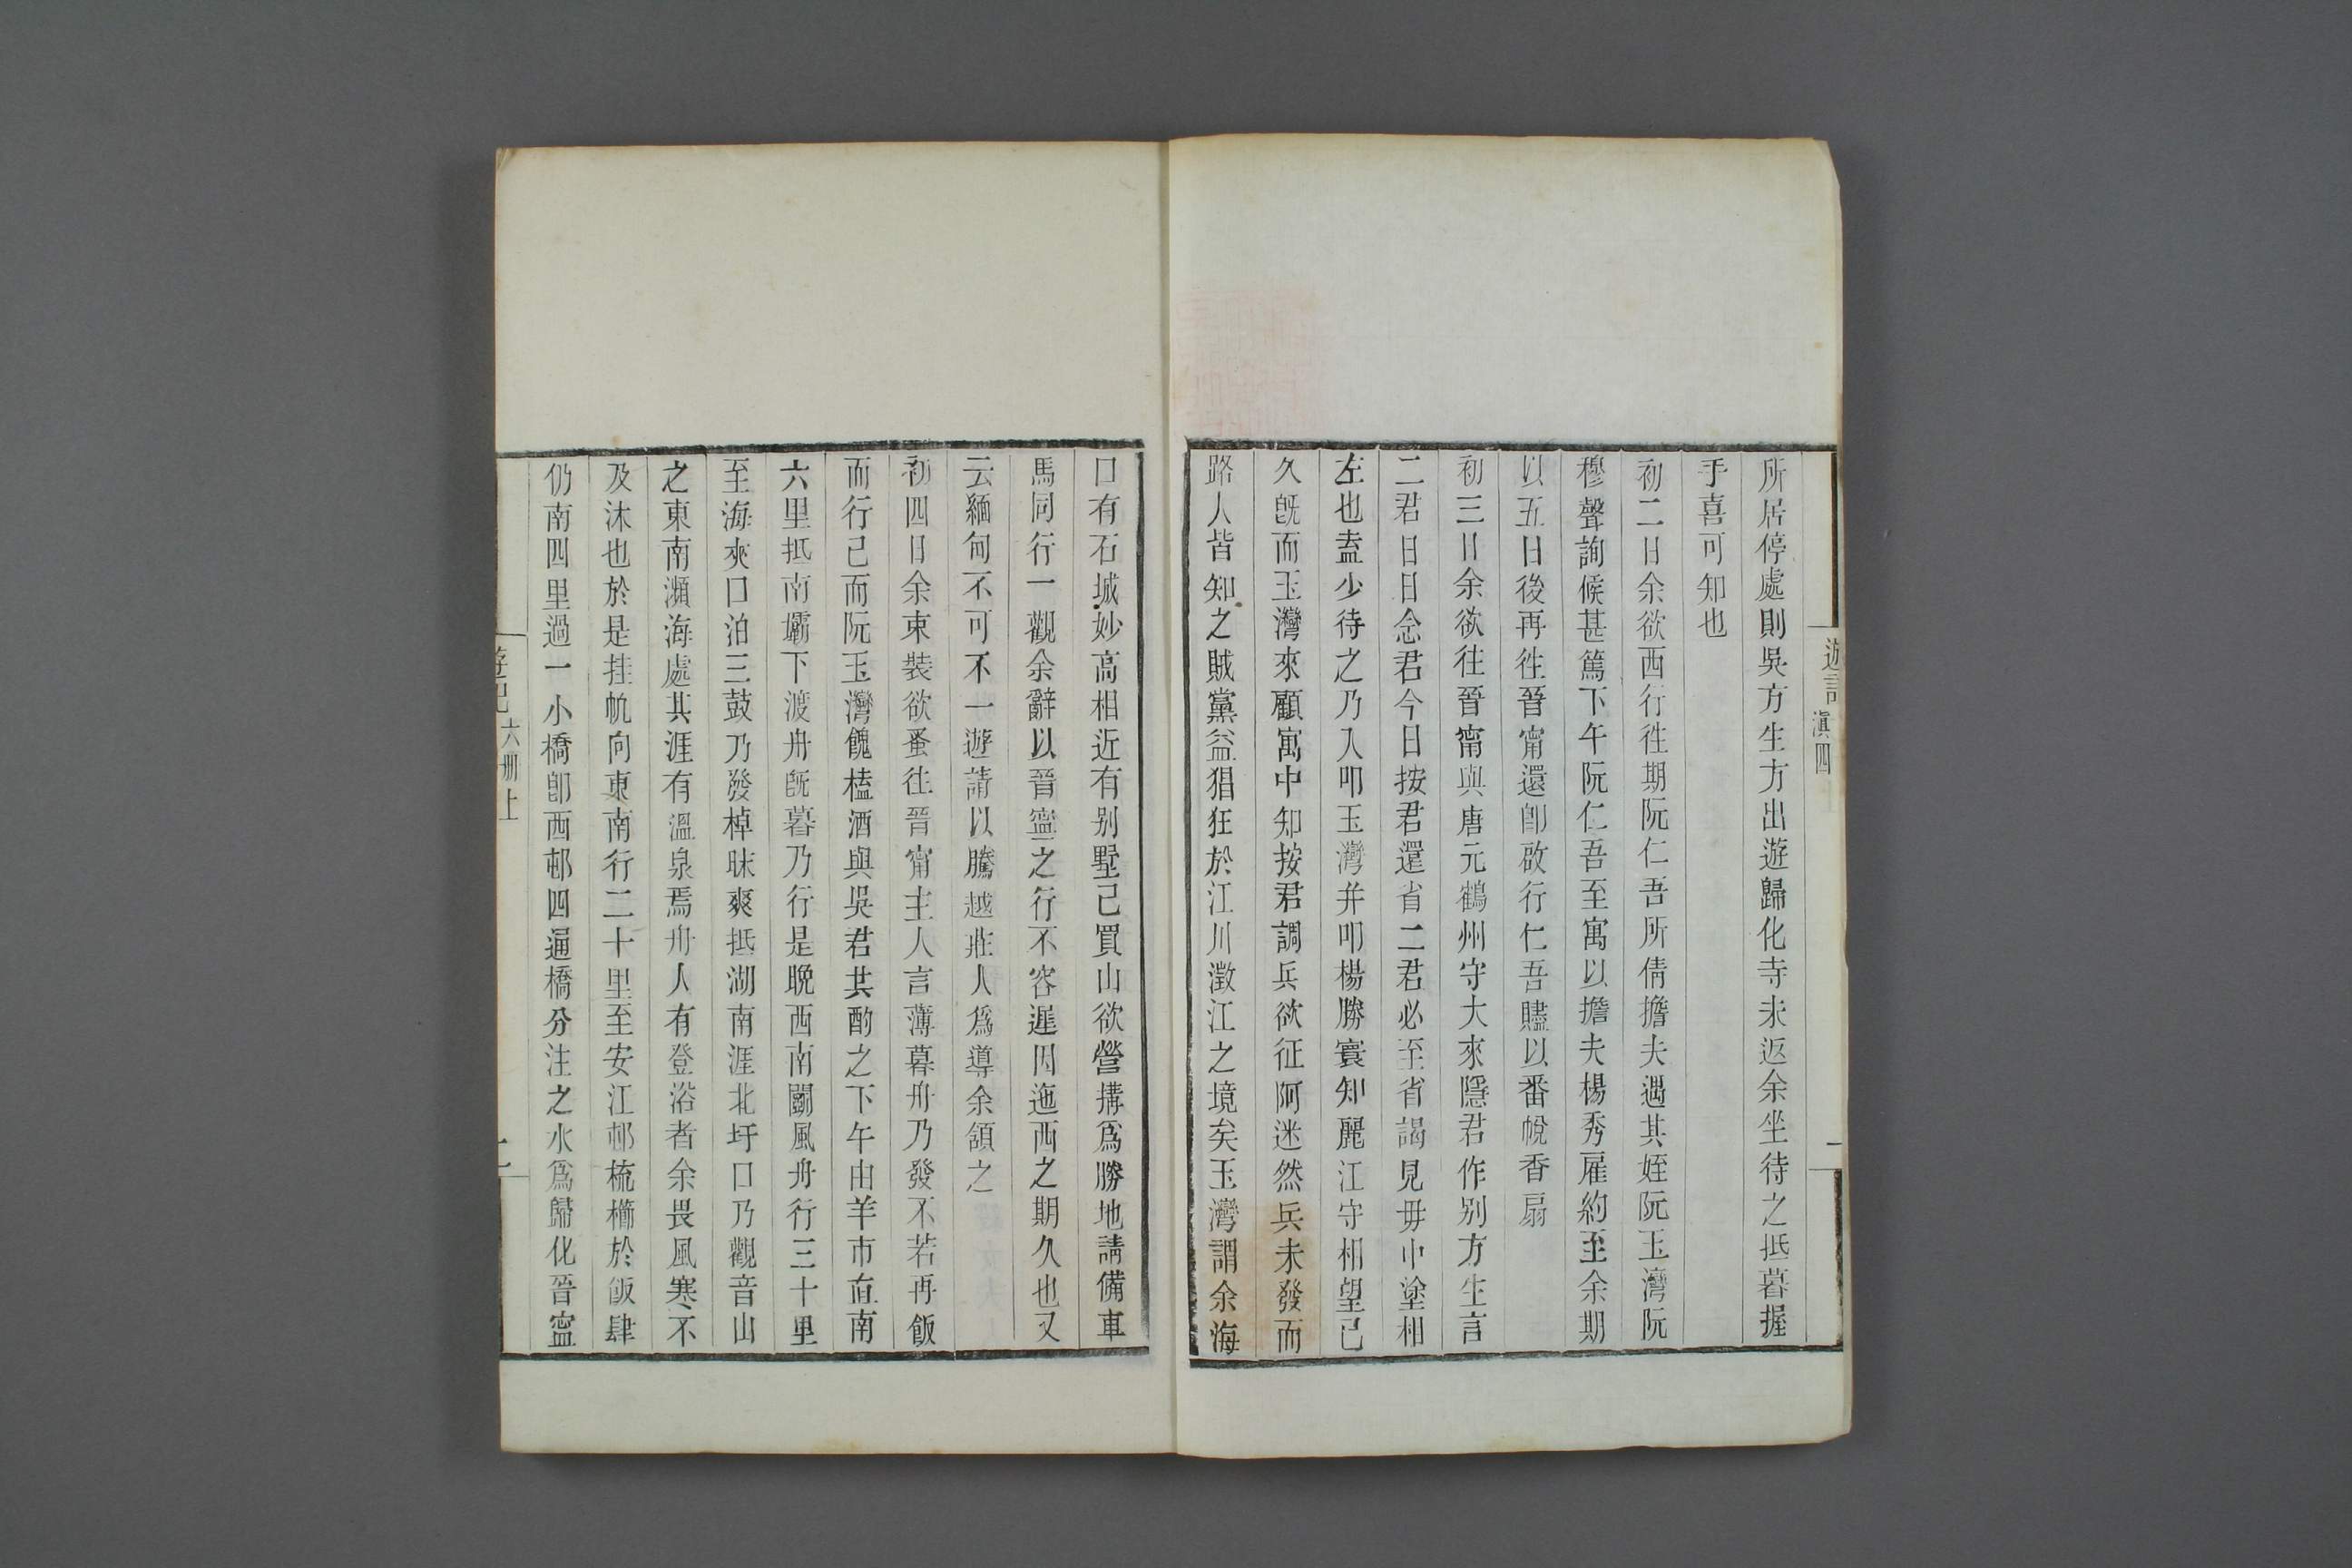 遊記 滇四 一
所居停處則吳方生方出遊歸化寺未返余坐待之抵暮握
手喜可知也
初二日余欲西行徃期阮仁吾所倩擔夫遇其姪阮玉灣阮
穆聲詢候甚篤下午阮仁吾至寓以擔夫楊秀雇約至余期
以五日後再徃晉甯還卽啟行仁吾贐以番帨香扇
初三日余欲往晉甯與唐元鶴州守大來隱君作别方生言
二君日日念君今日按君還省二君必至省謁見毋中塗相
左也盍少待之乃入叩玉灣并叩楊勝寰知麗江守相望已
久旣而玉灣來顧寓中知按君調兵欲征阿迷然兵未發而
路人皆知之賊黨益猖狂於江川澂江之境矣玉灣謂余海
口有石城妙高相近有别墅己買山欲營搆爲勝地請備車
馬同行一觀余辭以晉寧之行不容遲因迤西之期久也又
云緬甸不可不一遊請以騰越莊人爲導余頷之
初四日余束裝欲蚤往晉甯主人言薄暮舟乃發不若再飯
而行己而阮玉灣餽榼酒與吳君共酌之下午由羊市直南
六里抵南壩下渡舟旣暮乃行是晚西南颶風舟行三十里
至海夾口泊三鼓乃發棹昧爽抵湖南涯北圩口乃觀音山
之東南瀕海處其涯有溫泉焉舟人有登浴者余畏風寒不
及沐也於是挂帆向東南行二十里至安江邨梳櫛於飯肆
仍南四里過一小橋卽西邨四通橋分注之水爲歸化晉寧
遊記 六册上